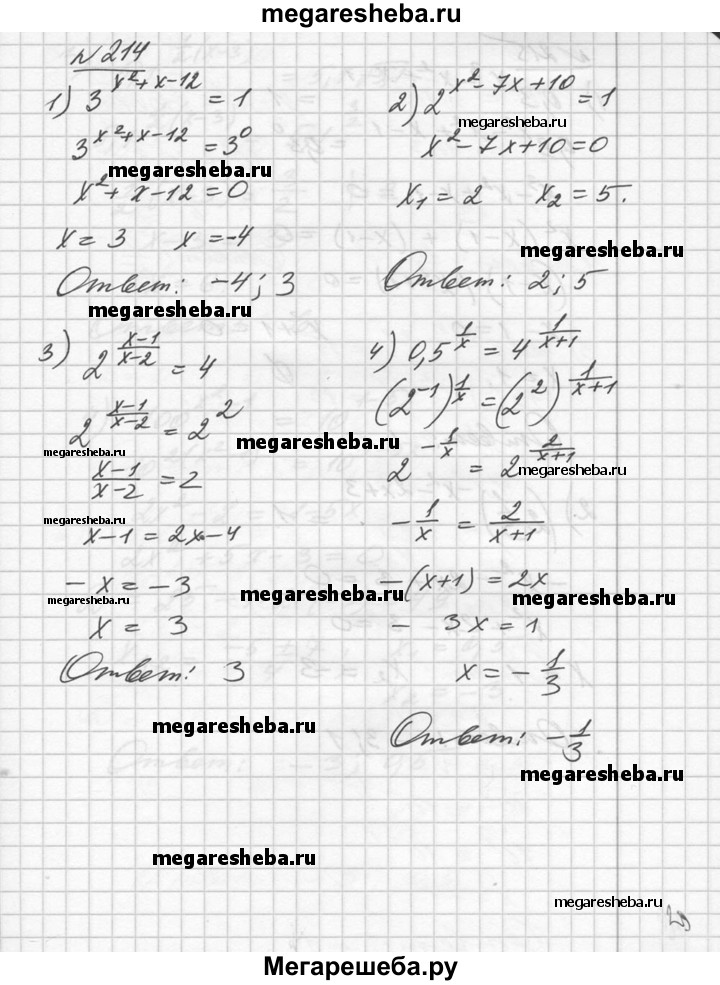 megaresheba.ru
№ 214
1) 3^(x²+x-12) = 1
3^(x²+x-12) = 3^0
megaresheba.ru
x²+x-12=0
x=3 x=-4
Ответ: -4; 3
megaresheba.ru
2) 2^(x²-7x+10) = 1
megaresheba.ru
x²-7x+10=0
x₁=2 x₂=5.
megaresheba.ru
Ответ: 2; 5
3) 2^((x-1)/(x-2)) = 4
2^((x-1)/(x-2)) = 2²
megaresheba.ru
megaresheba.ru
(x-1)/(x-2) = 2
megaresheba.ru
x-1=2x-4
-x=-3
megaresheba.ru
megaresheba.ru
x = 3
Ответ: 3
megaresheba.ru
megaresheba.ru
4) 0,5^(1/x) = 4^(1/(x+1))
(2^(-1))^(1/x) = (2²)^(1/(x+1))
2^(-1/x) = 2^(2/(x+1))
megaresheba.ru
-1/x = 2/(x+1)
-(x+1) = 2x
megaresheba.ru
- 3x = 1
x = -1/3
Ответ: -1/3
megaresheba.ru
megaresheba.ru
Мегарешеба.ру